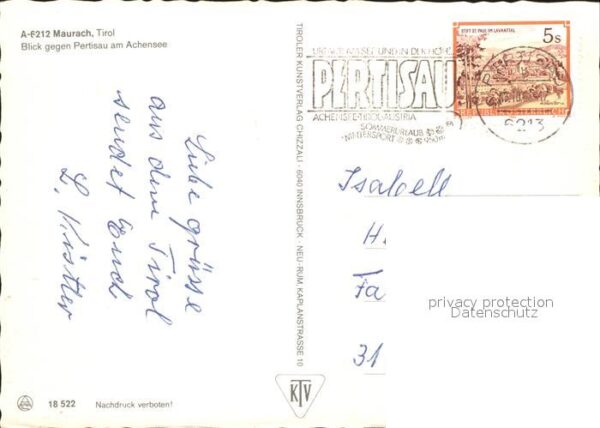 A-6212 Maurach, Tirol
Blick gegen Pertisau am Achensee
Liebe grüsse
aus dem Tirol
sendet Eud
L. Kistler
18 522 Nachdruck verboten!
TIROLER KUNSTVERLAG CHIZZALI · 6040 INNSBRUCK · NEU-RUM, KAPLANSTRASSE 10
KTV
UND IN DER
PERTISAU
ACHENSEE-TIROL-AUSTRIA
SOMMERURLAUB
WINTERSPORT
STIFT ST. PAUL IM LAVANTTAL
5s
REPUBLIK ÖSTERREICH
6213
Isabell
H.
Fa
31
privacy protection
Datenschutz